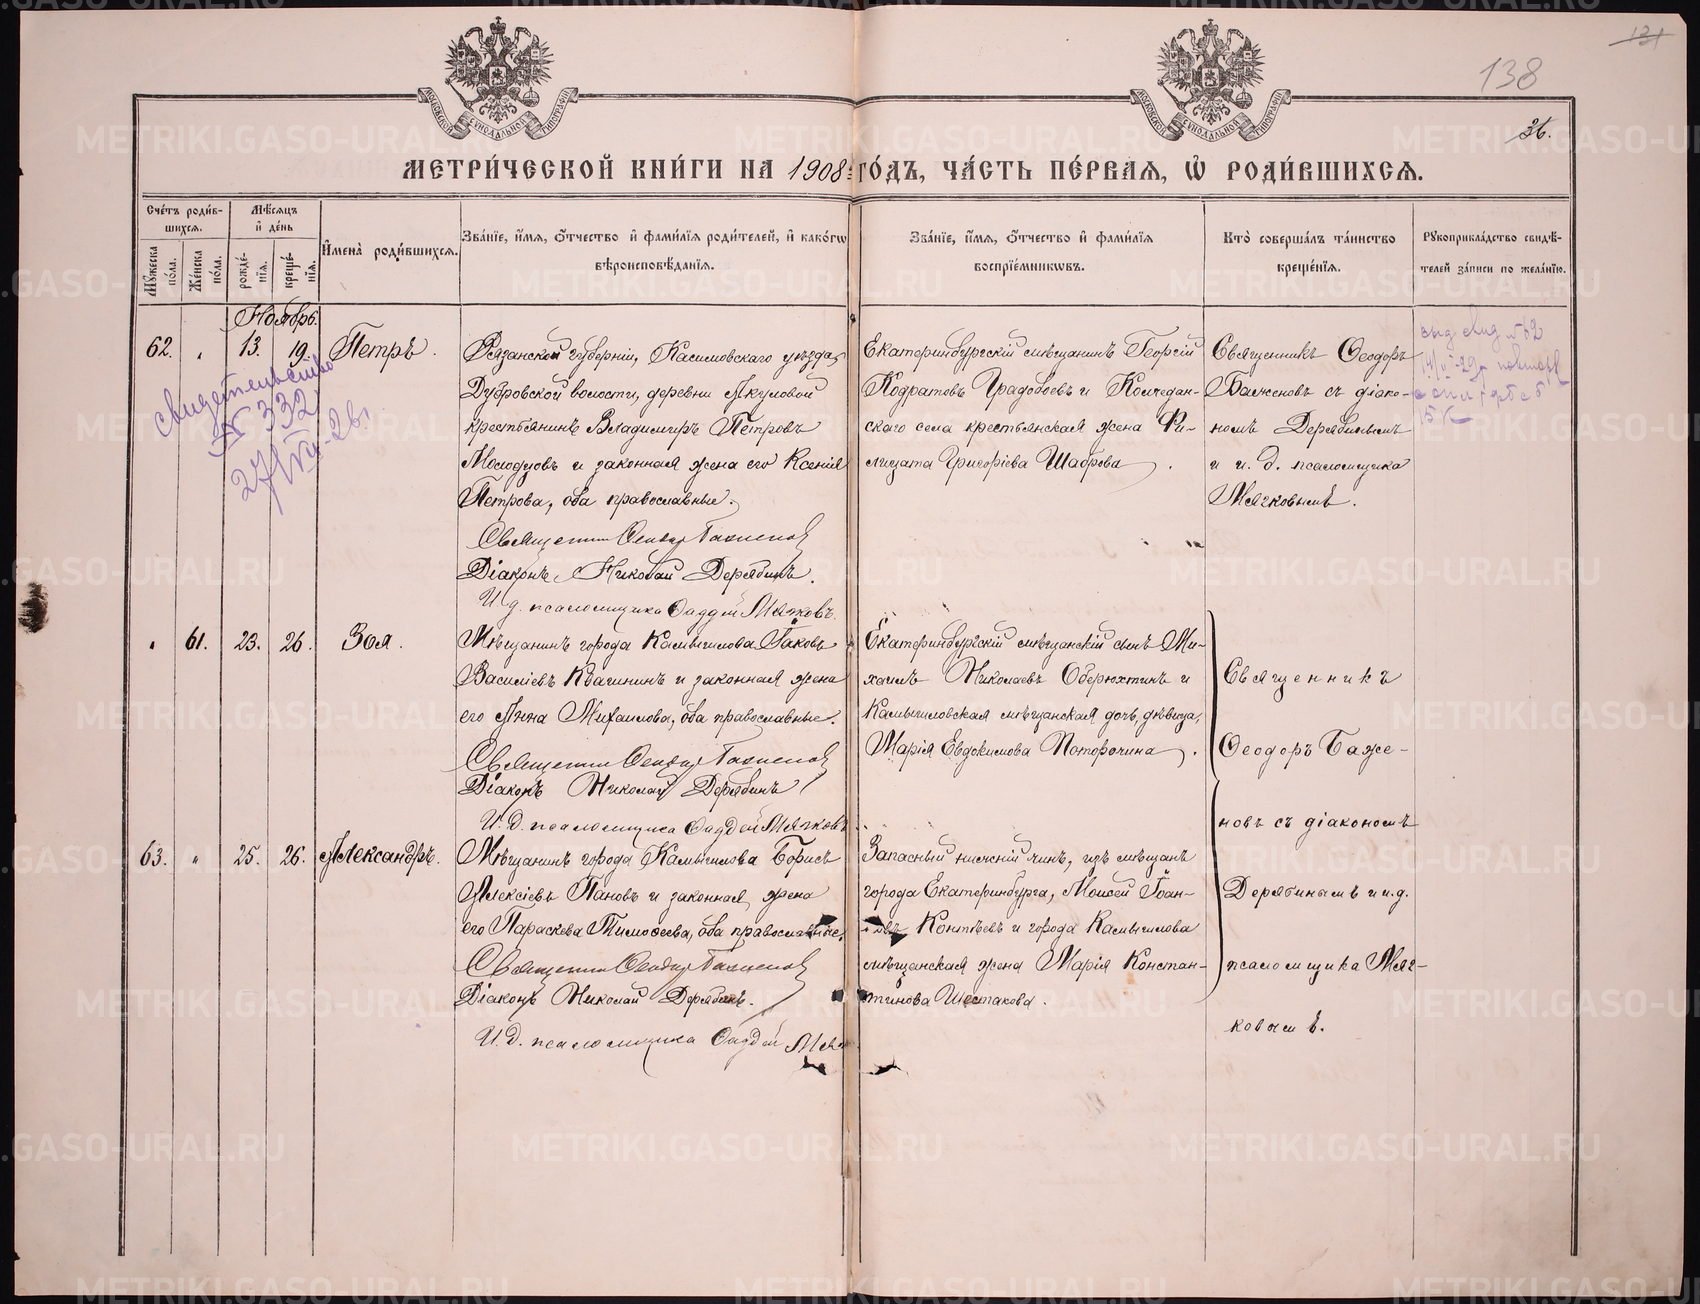 131
138
36.
МЕТРИ́ЧЕСКОЙ КНИ́ГИ НА 1908 ГО́ДЪ, ЧА́СТЬ ПЕ́РВАЯ, Ѡ҆ РОДИ́ВШИХСЯ.
Сче́тъ роди́в-
шихся.
Мꙋ́жеска по́ла.
Же́нска по́ла.
Мѣ́сяцъ и҆ де́нь
рожде́нїѧ.
креще́нїѧ.
И҆мена̀ роди́вшихся.
Зва́нїе, и҆́мѧ, ѻ҆́тчество и҆ фами́лїѧ роди́телей, и҆ како́гѡ
вѣроисповѣ́данїѧ.
Зва́нїе, и҆́мѧ, ѻ҆́тчество и҆ фами́лїѧ
воспрїе́мникѡвъ.
Кто̀ соверша́лъ та́инство
креще́нїѧ.
Рꙋкоприкла́дство свидѣ́-
телей за́писи по жела́нїю.
Ноябрь.
62. " 13. 19. Петръ.
Рязанской губерніи, Касимовскаго уѣзда,
Дубровской волости, деревни Акуловой
крестьянинъ Владимиръ Петровъ
Молодцовъ и законная жена его Ксенія
Петрова, оба православные.
Священникъ Ѳеодоръ Баженовъ
Діаконъ Николай Дерябинъ.
И. д. псаломщика Ѳаддей Мячковъ
Екатеринбургскій мѣщанинъ Георгій
Кодратовъ Градобоевъ и Колчедан-
скаго села крестьянская жена Фи-
лицата Григоріева Шаброва.
Священникъ Ѳеодоръ
Баженовъ съ діако-
номъ Дерябинымъ
и и. д. псаломщика
Мячковымъ.
свидетельство
№ 332
27/VII-26.
№ 62
" 61. 23. 26. Зоя.
Мѣщанинъ города Камышлова Іаковъ
Василіевъ Квашнинъ и законная жена
его Анна Михаилова, оба православные.
Священникъ Ѳеодоръ Баженовъ
Діаконъ Николай Дерябинъ
И. д. псаломщика Ѳаддей Мячковъ
Екатеринбургскій мѣщанскій сынъ Ми-
хаилъ Николаевъ Оберюхтинъ и
Камышловская мѣщанская дочь, дѣвица,
Марія Евдокимова Поторочина.
Священникъ
Ѳеодоръ Баже-
новъ съ діакономъ
Дерябинымъ и и. д.
псаломщика Мяч-
ковымъ.
63. " 25. 26. Александръ.
Мѣщанинъ города Камышлова Борисъ
Алексіевъ Пановъ и законная жена
его Параскева Тимоѳеева, оба православные.
Священникъ Ѳеодоръ Баженовъ
Діаконъ Николай Дерябинъ.
И. д. псаломщика Ѳаддей Мяч
Запасный нижній чинъ, изъ мѣщанъ
города Екатеринбурга, Моисей Іоан-
новъ Контѣевъ и города Камышлова
мѣщанская жена Марія Констан-
тинова Шестакова.